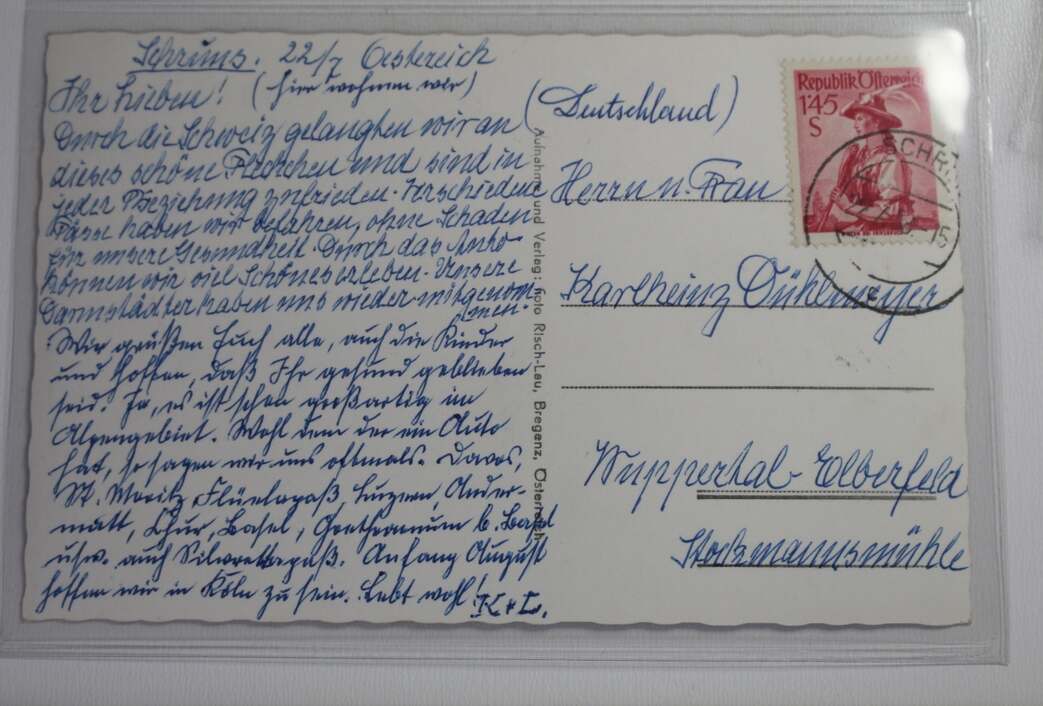 Schruns. 22/7 Oestereich
Ihr Lieben! (hier wohnen wir)
Durch die Schweiz gelangten wir an
dieses schöne Fleckchen und sind in
jeder Beziehung zufrieden. Verschiedene
Pässe haben wir befahren, ohne Schaden
für unsere Gesundheit. Durch das Auto
können wir viel Schönes erleben. Unsere
Darmstädter haben uns wieder mitgenom-
men.
Wir grüßen Euch alle, auch die Kinder
und hoffen, daß Ihr gesund geblieben
seid. Ja, es ist schon großartig im
Alpengebiet. Wohl dem der ein Auto
hat, so sagen wir uns oftmals. Davos,
St. Moritz Flüelapaß, Luzern, Ander-
matt, Chur, Basel, Goetheanum b. Basel
usw. auch Silvrettapaß. Anfang August
hoffen wir in Köln zu sein. Lebt wohl!
K + L.
Aufnahme und Verlag: Foto Risch-Lau, Bregenz, Österreich
Republik Österreich
1'45
S
SCHR
15
(Deutschland)
Herrn u. Frau
Karlheinz Dühlmeyer
Wuppertal-Elberfeld
Stockmannsmühle